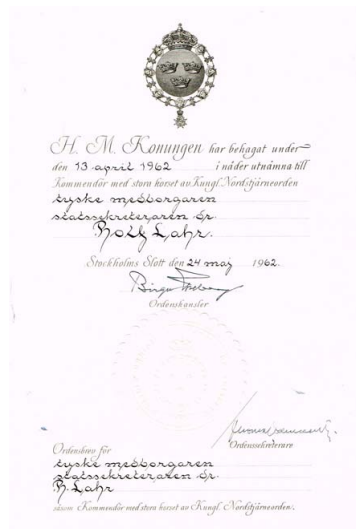 H. M. Konungen har behagat under
den 13 april 1962 i nåder utnämna till
Kommendör med stora korset av Kungl. Nordstjärneorden
tyske medborgaren
statssekreteraren dr.
Rolf Lahr.
Stockholms Slott den 24 maj 1962.
Birger
Ordenskansler
Ordenssekreterare
Ordensbrev för
tyske medborgaren
statssekreteraren dr.
R. Lahr
såsom Kommendör med stora korset av Kungl. Nordstjärneorden.